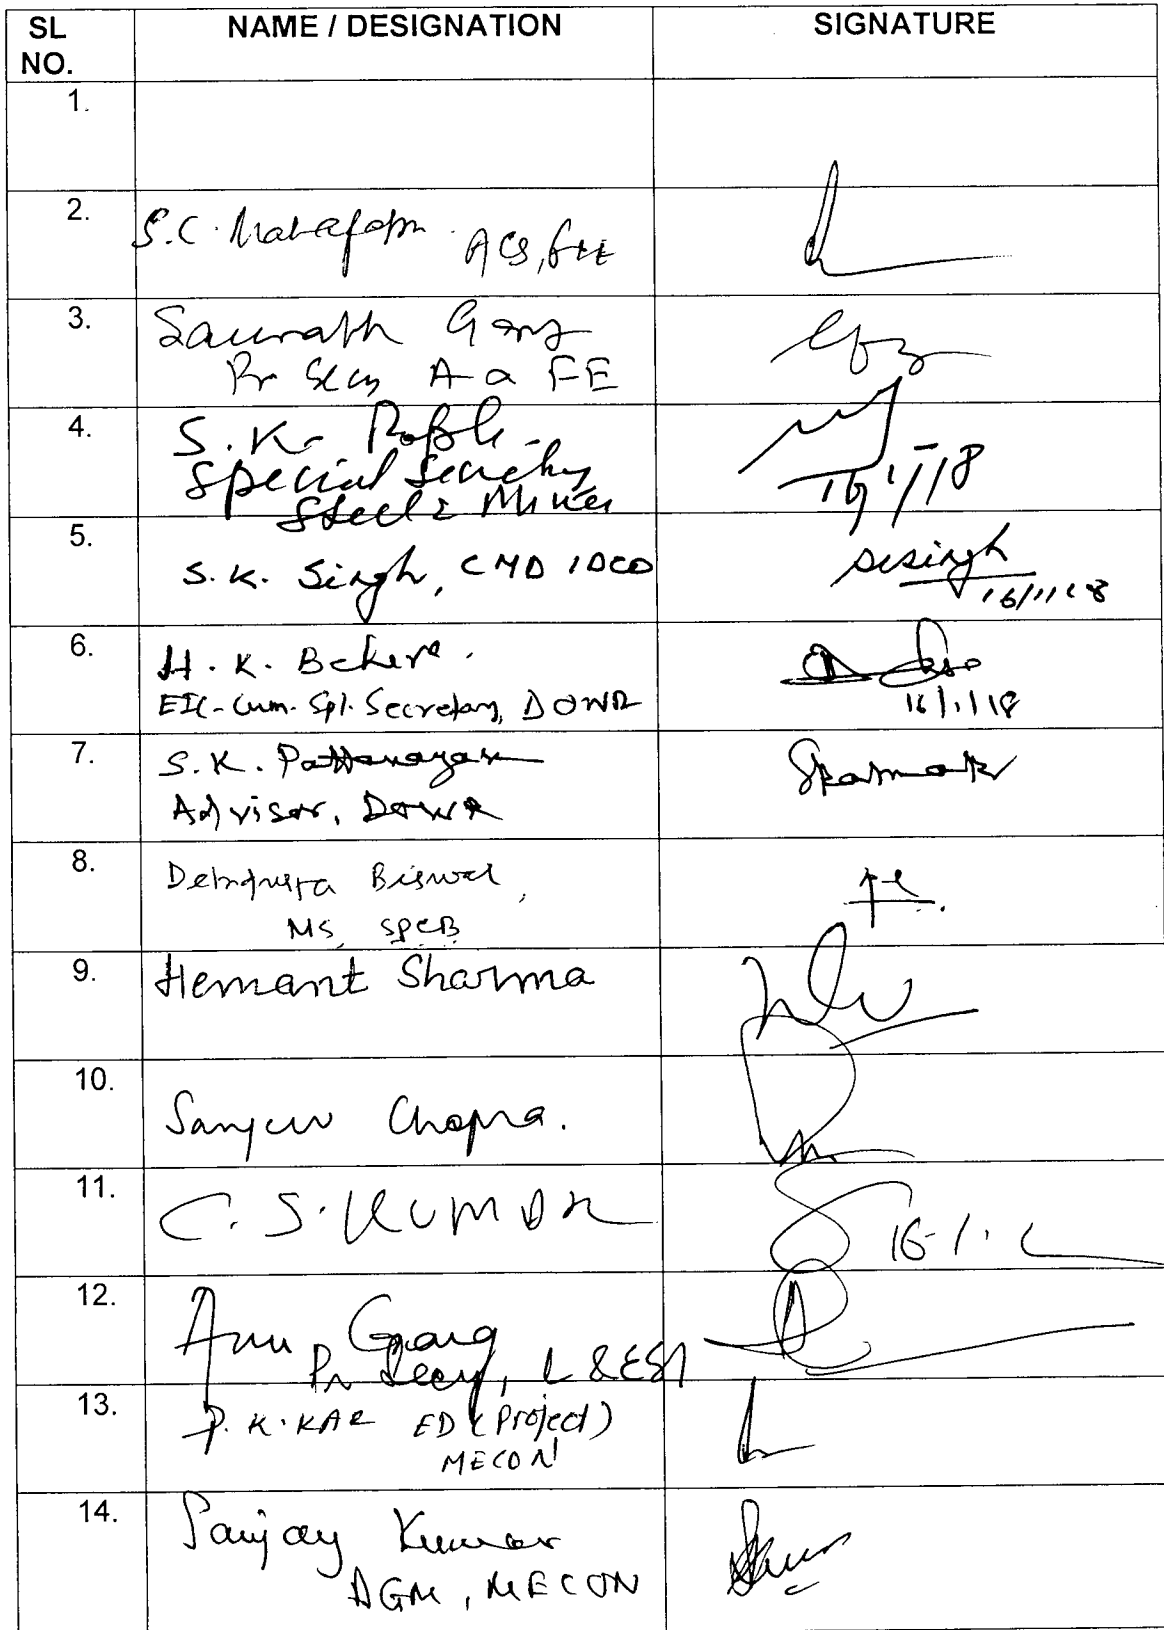 SL NO. NAME / DESIGNATION SIGNATURE
1.
2. S.C. Mahapatra ACS, F&E
3. Saurabh Garg
Pr Secy A & FE
4. S.K.
Special Secretary
Steel & Mines
16/1/18
5. S.K. Singh, CMD IDCO sksingh
16/1/18
6. H.K. Behera.
EIC-Cum-Spl. Secretary, DOWR 16/1/18
7. S.K. Pattanayak
Advisor, DOWR
8. Biswal,
MS, SPCB
9. Hemant Sharma
10. Sanjeev Chopra.
11. C.S. KUMAR 16.1.
12. Anu Garg
Pr Secy, L & ESI
13. P.K. KAR ED (Project)
MECON
14. Sanjay Kumar
AGM, MECON